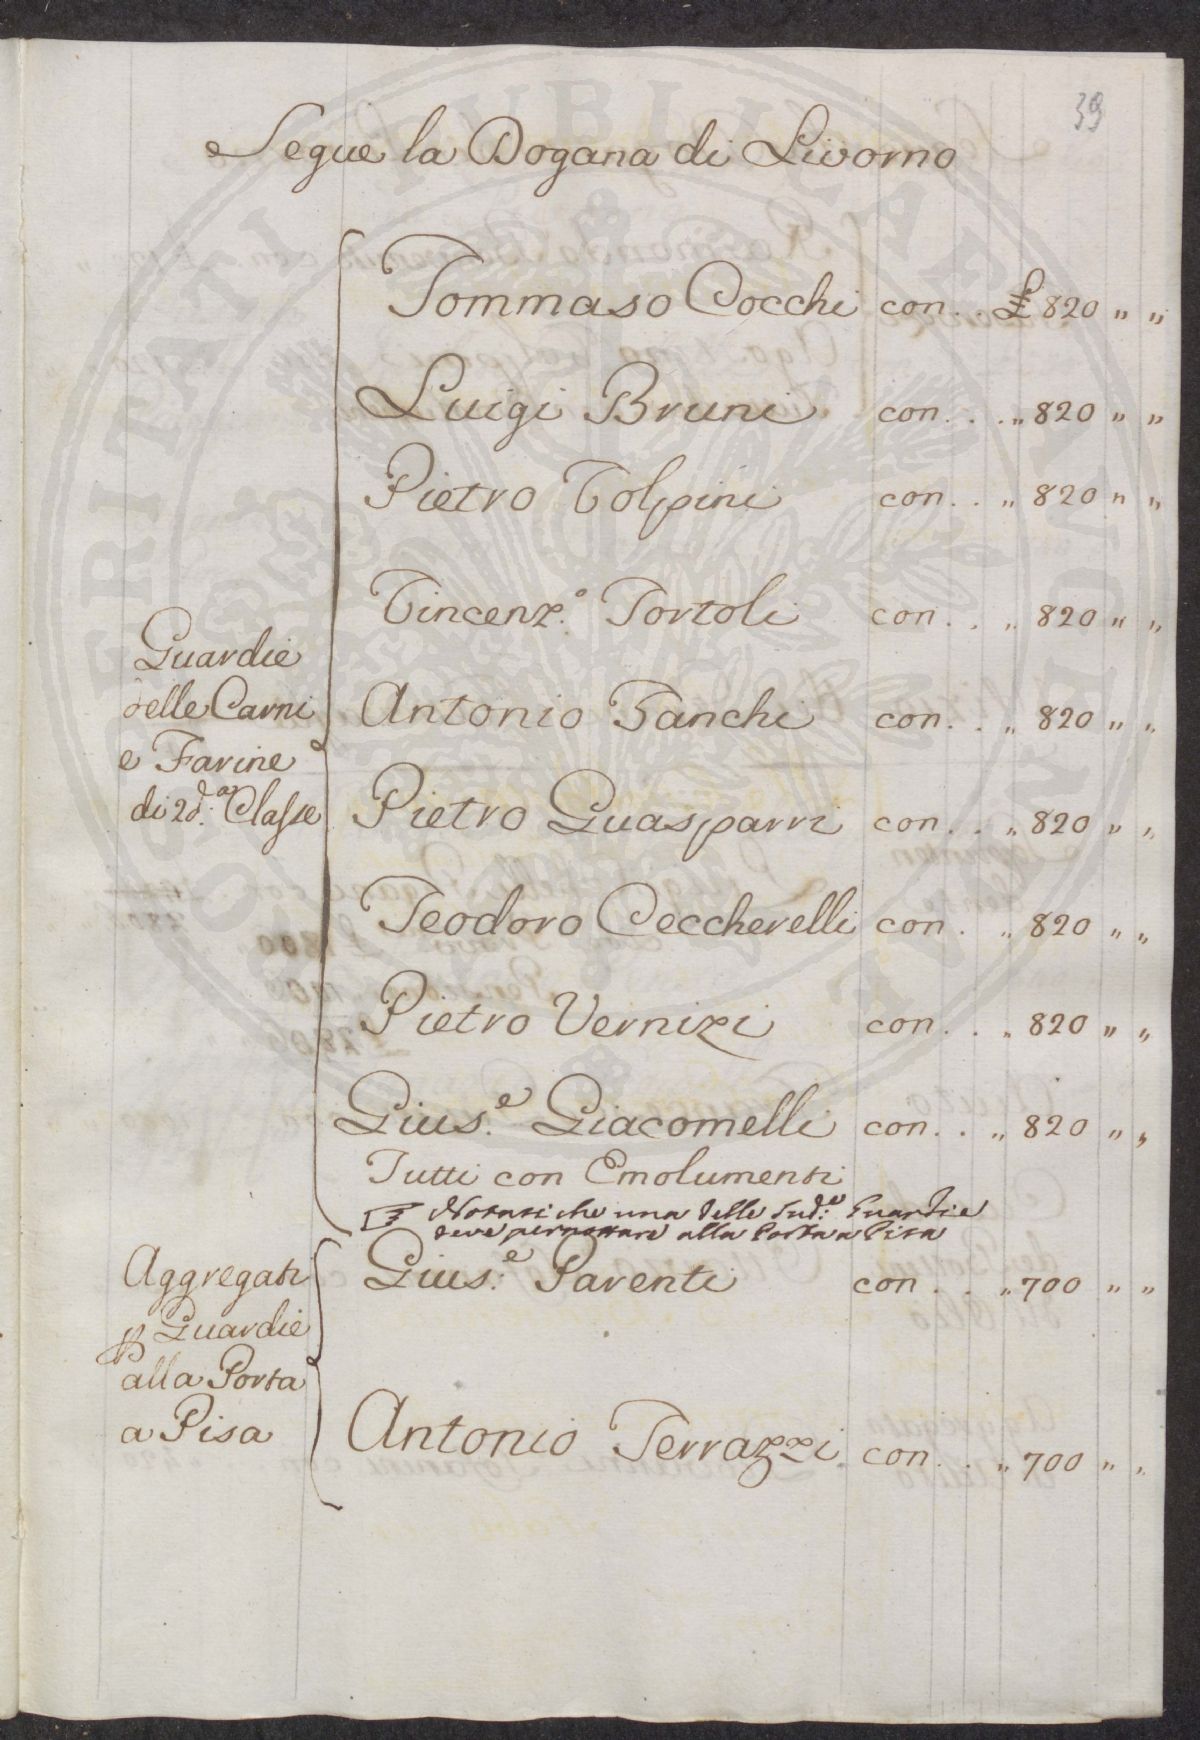 39
Segue la Dogana di Livorno
Tommaso Cocchi con . . £ 820 " "
Luigi Bruni con . . . " 820 " "
Pietro Volpini con . . " 820 " "
Vincenz.º Tortoli con . . " 820 " "
Guardie
delle Carni
e Farine
di 2d.ª Classe
Antonio Banchi con . . " 820 " "
Pietro Guasparri con . . " 820 " "
Teodoro Ceccherelli con . " 820 " "
Pietro Vernizi con . . " 820 " "
Gius.e Giacomelli con . . " 820 " "
Tutti con Emolumenti
☞ Notasi che una delle Sud.e Guardie
deve pernottare alla Porta a Pisa
Aggregati
p Guardie
alla Porta
a Pisa
Gius.e Parenti con . . " 700 " "
Antonio Terrazzi con . . " 700 " "